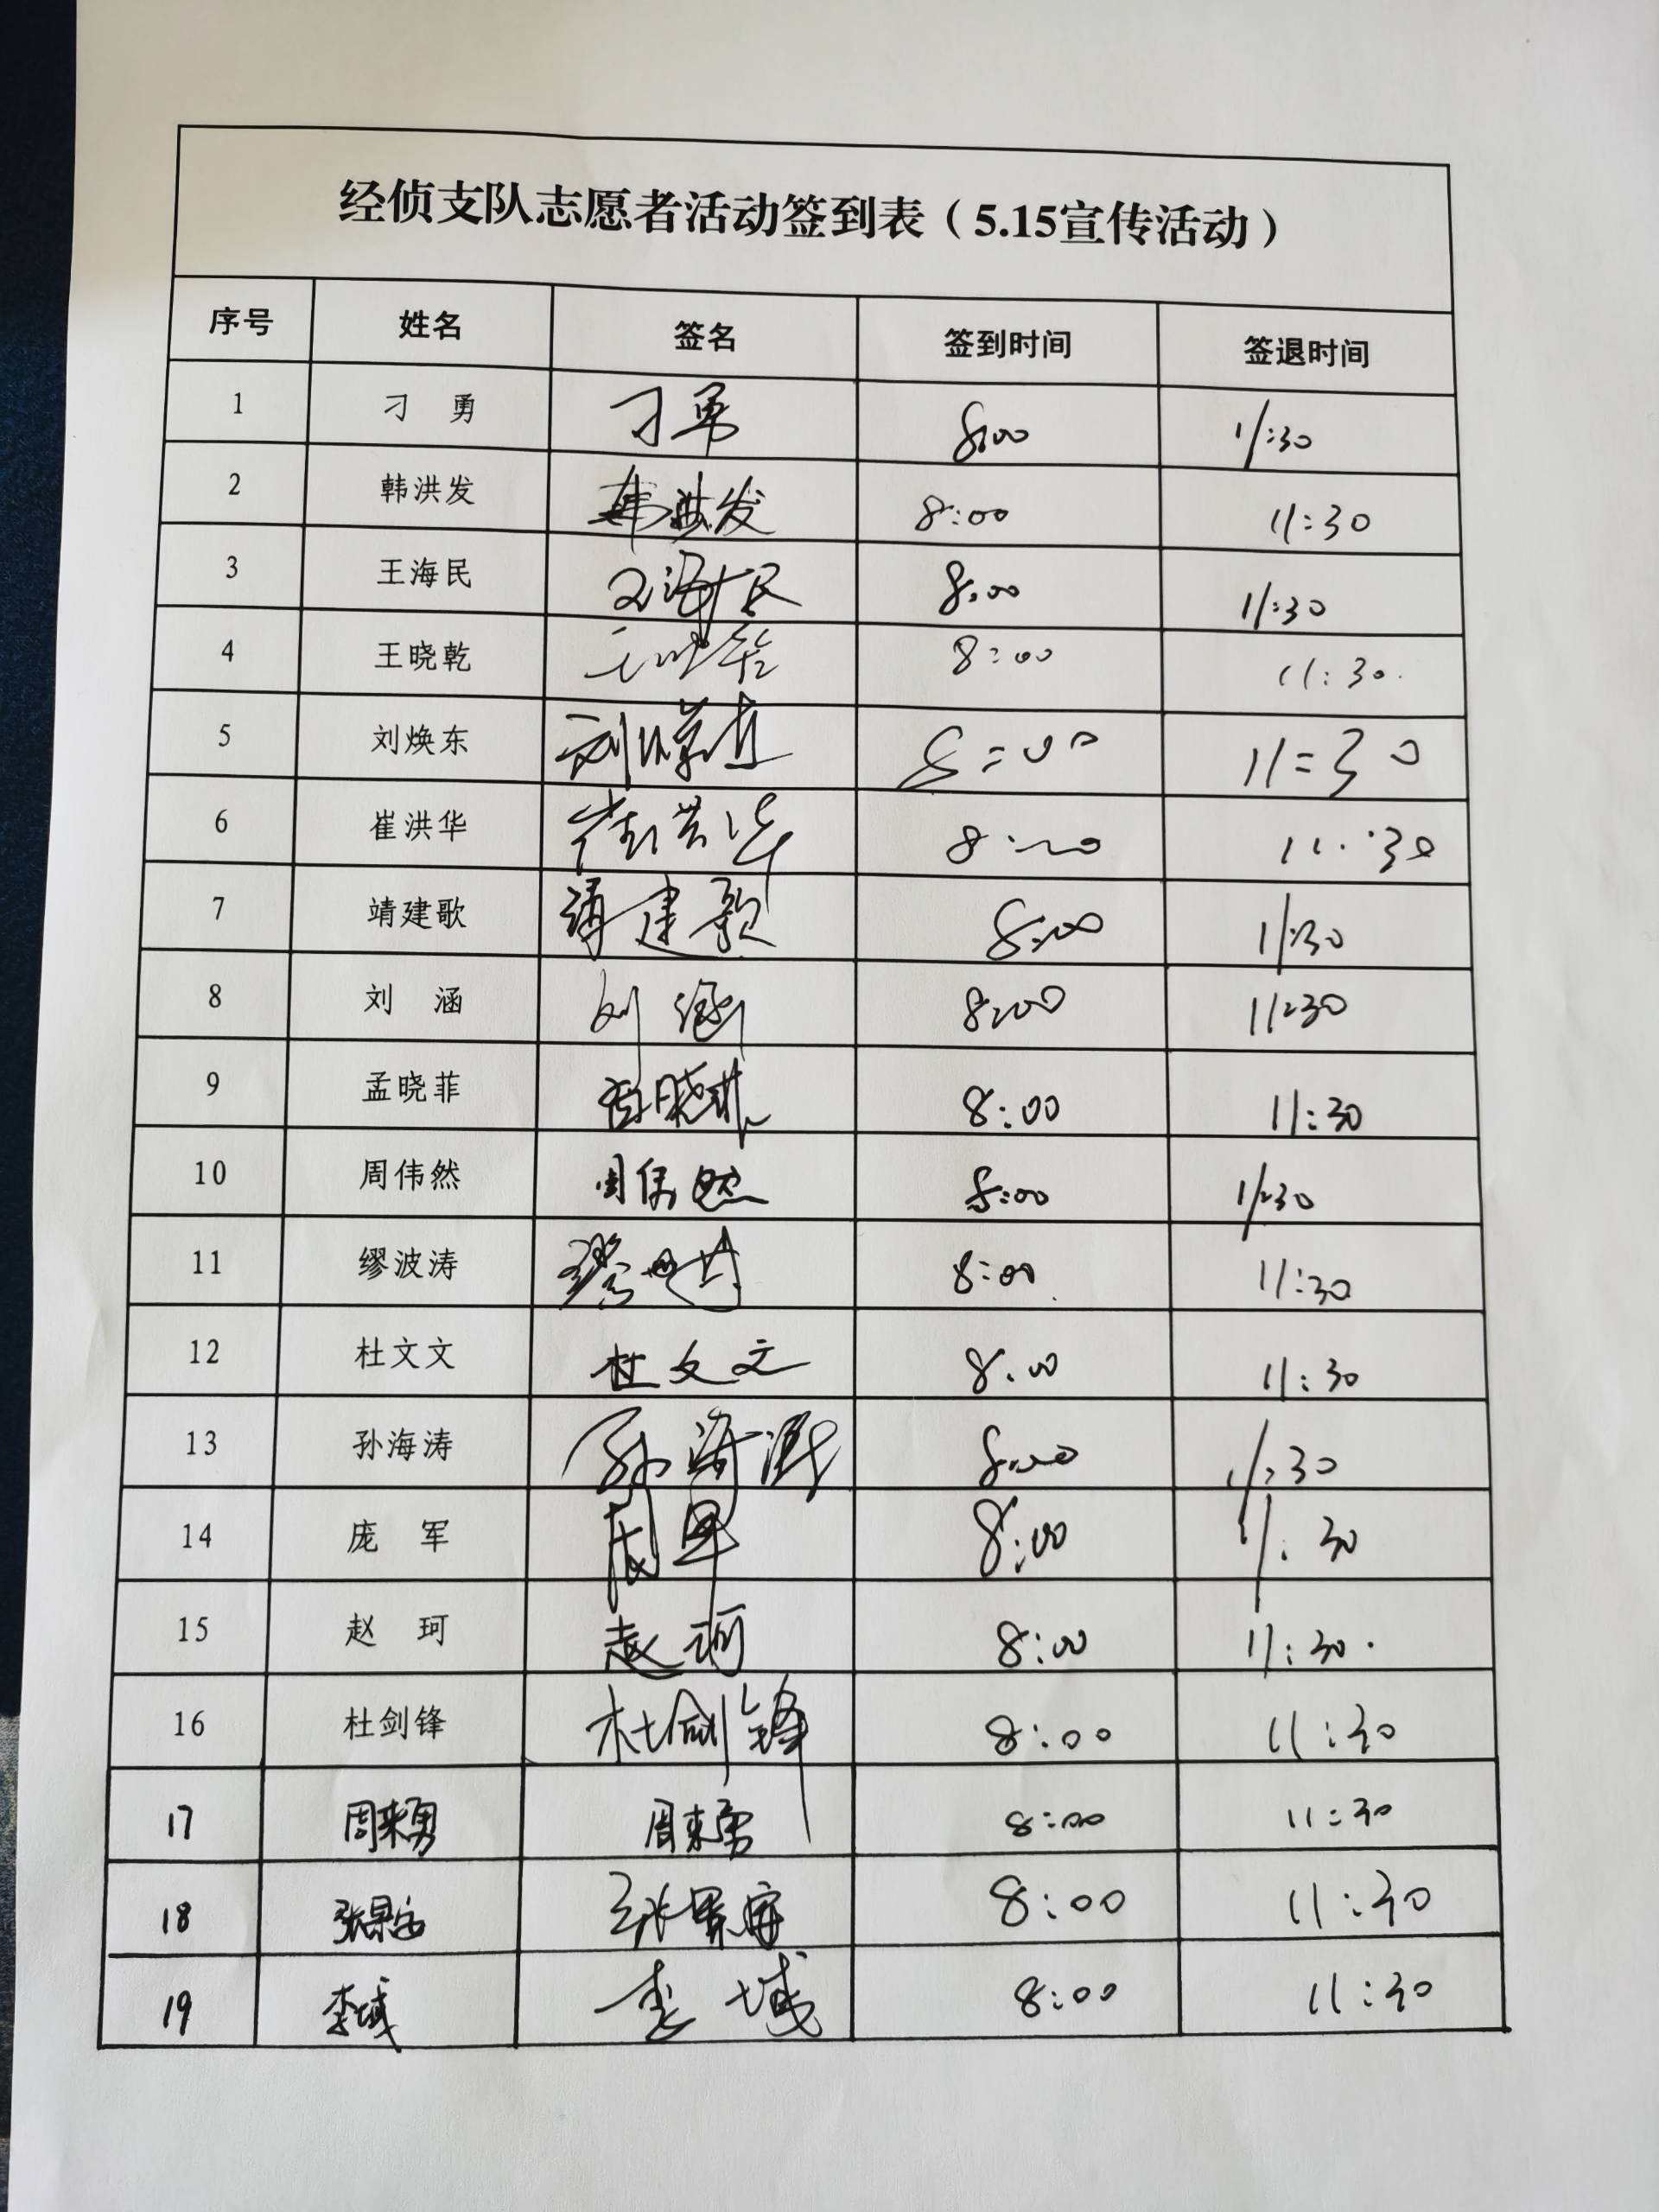 经侦支队志愿者活动签到表（5.15宣传活动）
序号 姓名 签名 签到时间 签退时间
1 刁 勇 刁勇 8:00 11:30
2 韩洪发 韩洪发 8:00 11:30
3 王海民 王海民 8:00 11:30
4 王晓乾 王晓乾 8:00 11:30
5 刘焕东 刘焕东 8:00 11:30
6 崔洪华 崔洪华 8:00 11:30
7 靖建歌 靖建歌 8:00 11:30
8 刘 涵 刘涵 8:00 11:30
9 孟晓菲 孟晓菲 8:00 11:30
10 周伟然 周伟然 8:00 11:30
11 缪波涛 缪波涛 8:00 11:30
12 杜文文 杜文文 8:00 11:30
13 孙海涛 孙海涛 8:00 11:30
14 庞 军 庞军 8:00 11:30
15 赵 珂 赵珂 8:00 11:30
16 杜剑锋 杜剑锋 8:00 11:30
17 周来勇 周来勇 8:00 11:30
18 8:00 11:30
19 李域 李域 8:00 11:30